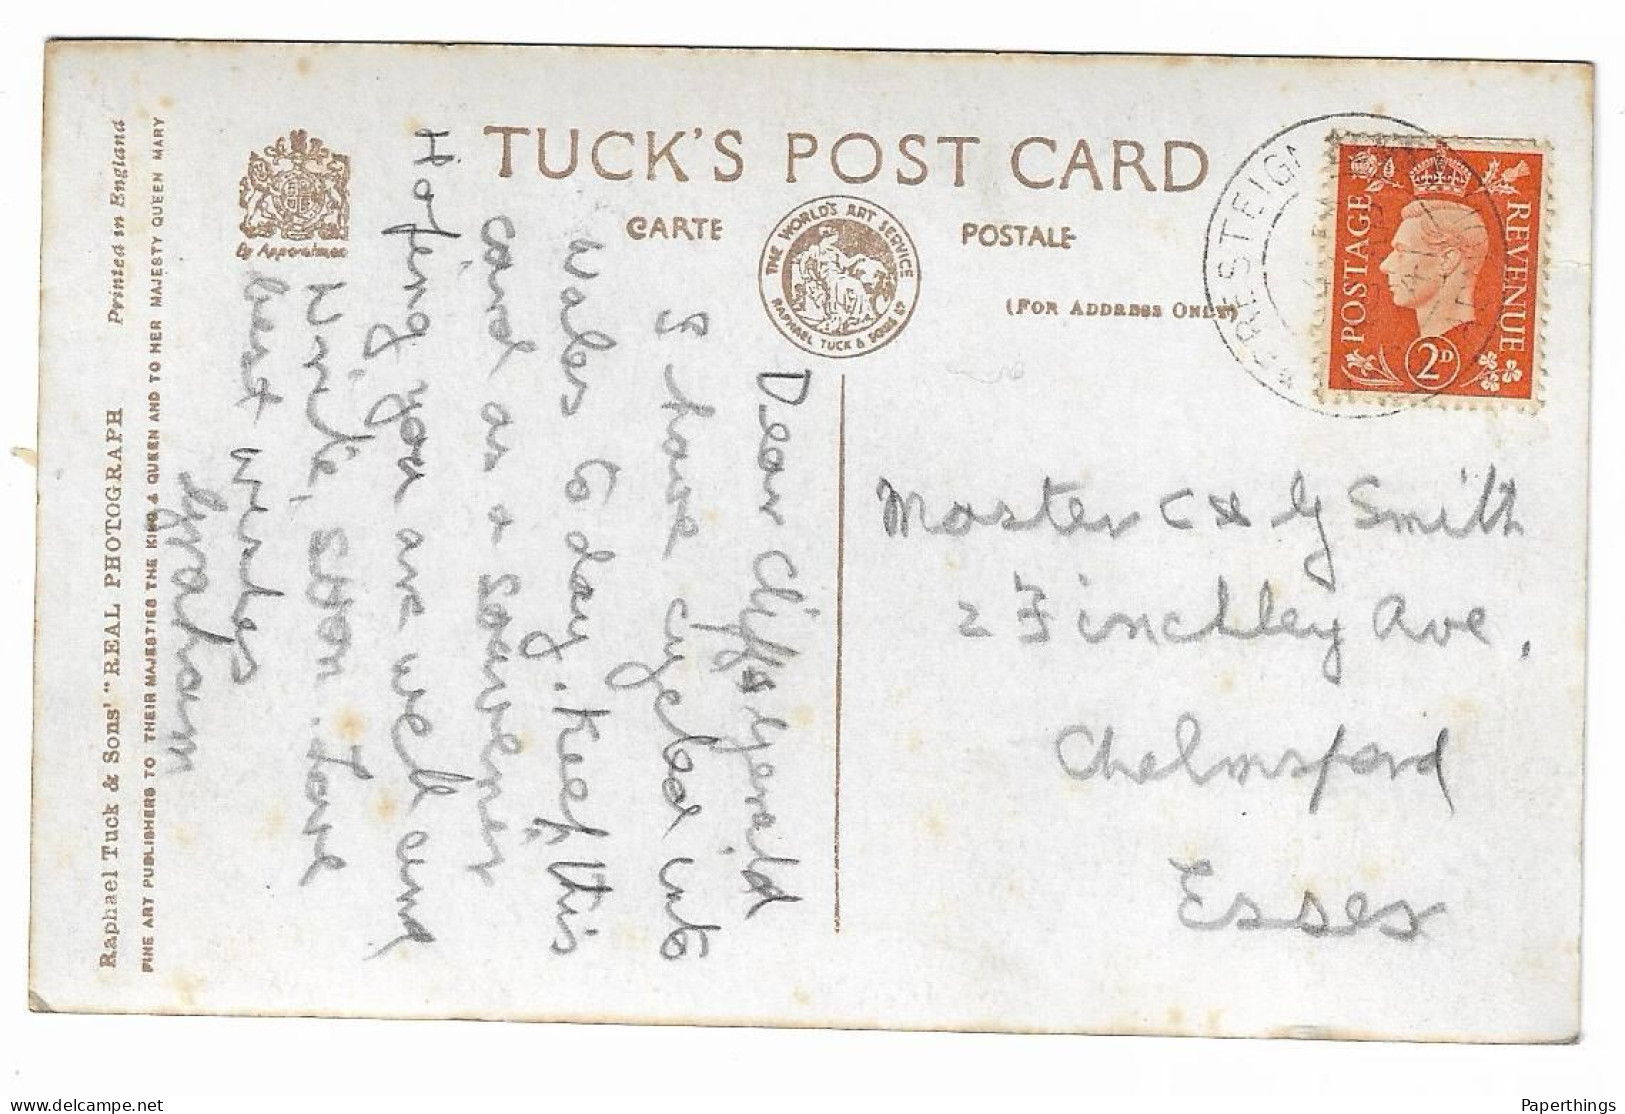 TUCK'S POST CARD
CARTE POSTALE
THE WORLD'S ART SERVICE
RAPHAEL TUCK & SONS LTD
(FOR ADDRESS ONLY)
By Appointment
PRESTEIG
POSTAGE
REVENUE
2D
Dear Cliff & Gerald
I have cycled into
Wales to day. Keep this
card as a souvener
Hoping you are well and
Write soon. Love
best wishes
Graham
Master C & G Smith
2 Finchley Ave,
Chelmsford
Essex
Raphael Tuck & Sons' "REAL PHOTOGRAPH Printed in England
FINE ART PUBLISHERS TO THEIR MAJESTIES THE KING & QUEEN AND TO HER MAJESTY QUEEN MARY
© Copyright by seller
Paperthings